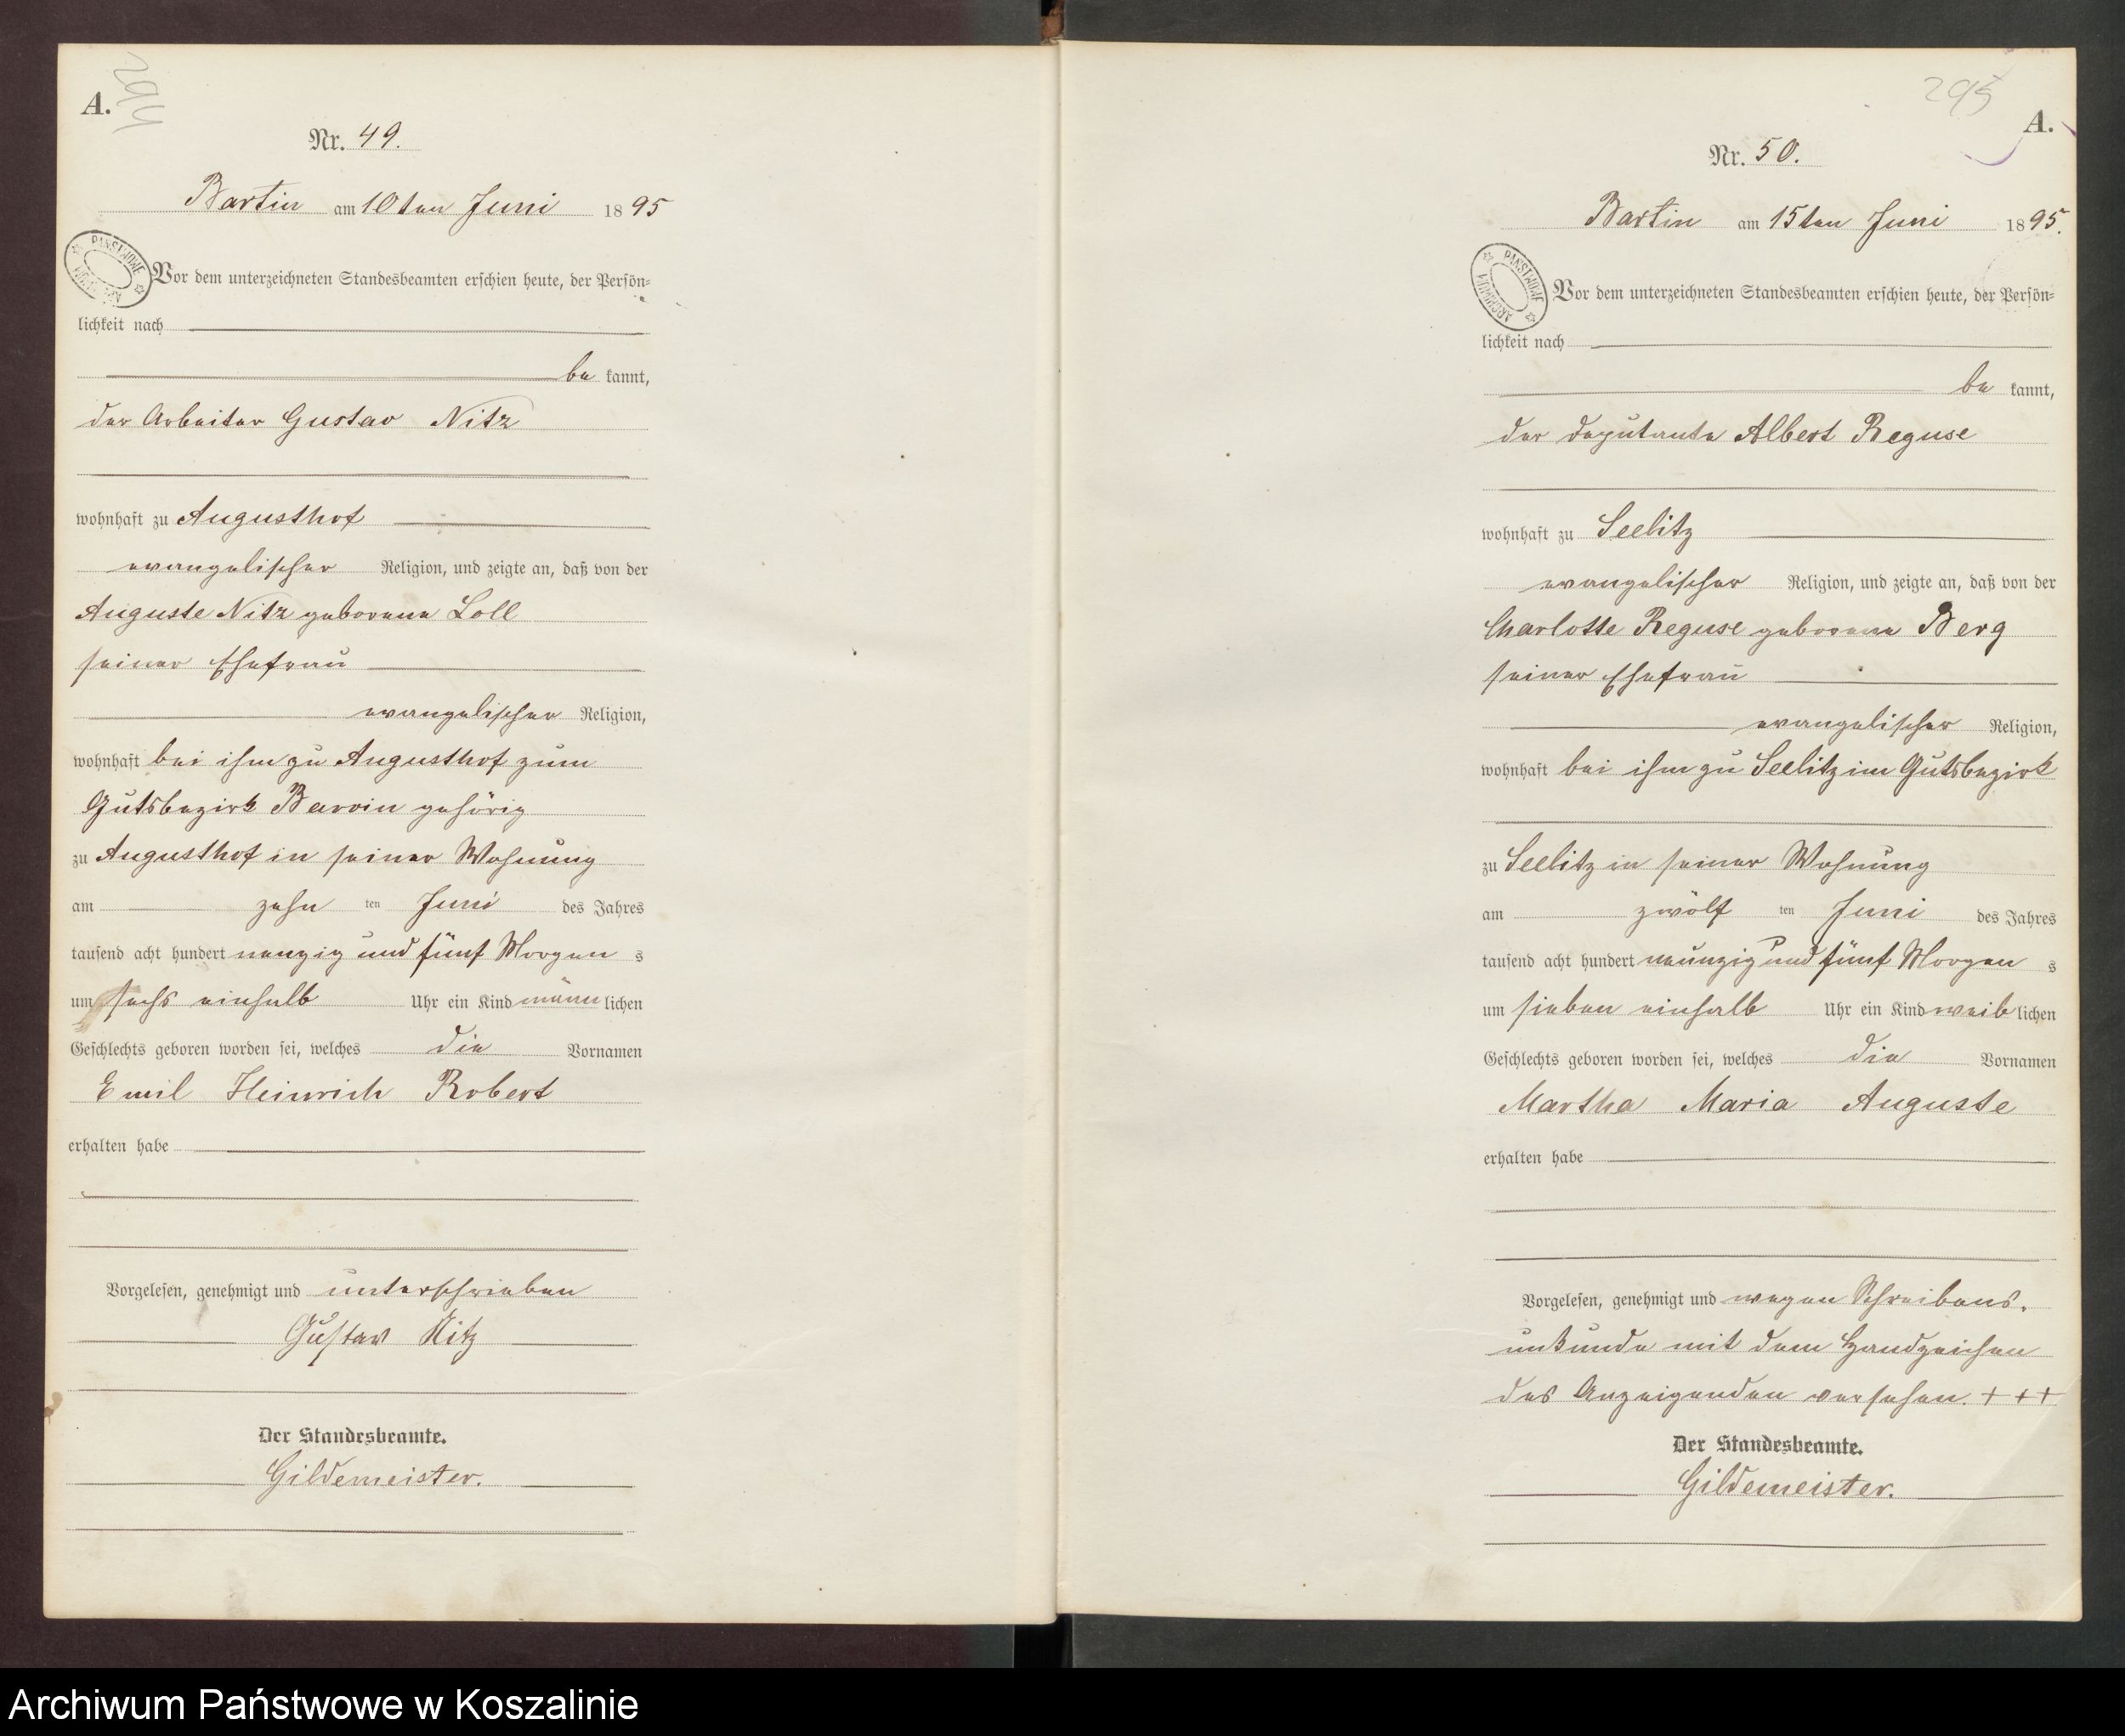 A.
294
Nr. 49.
Bartin am 10ten Juni 1895
PAŃSTWOWE
Vor dem unterzeichneten Standesbeamten erschien heute, der Persön=
lichkeit nach
be kannt,
der Arbeiter Gustav Nitz
wohnhaft zu Augusthof
evangelischer Religion, und zeigte an, daß von der
Auguste Nitz geborene Loll
seiner Ehefrau
evangelischer Religion,
wohnhaft bei ihm zu Augusthof zum
Gutsbezirk Barvin gehörig
zu Augusthof in seiner Wohnung
am zehn ten Juni des Jahres
tausend acht hundert neuzig und fünf Morgen s
um sechs einhalb Uhr ein Kind männ lichen
Geschlechts geboren worden sei, welches die Vornamen
Emil Heinrich Robert
erhalten habe
Vorgelesen, genehmigt und unterschrieben
Gustav Nitz
Der Standesbeamte.
Gildemeister.
295
A.
Nr. 50.
Bartin am 15ten Juni 1895.
PAŃSTWOWE ARCHIWUM
Vor dem unterzeichneten Standesbeamten erschien heute, der Persön=
lichkeit nach
be kannt,
der Deputante Albert Reguse
wohnhaft zu Seelitz
evangelischer Religion, und zeigte an, daß von der
Charlotte Reguse geborene Berg
seiner Ehefrau
evangelischer Religion,
wohnhaft bei ihm zu Seelitz im Gutsbezirk
zu Seelitz in seiner Wohnung
am zwölf ten Juni des Jahres
tausend acht hundert neunzig und fünf Morgen s
um sieben einhalb Uhr ein Kind weib lichen
Geschlechts geboren worden sei, welches die Vornamen
Martha Maria Auguste
erhalten habe
Vorgelesen, genehmigt und wegen Schreibens-
unkunde mit dem Handzeichen
des Anzeigenden versehen. + + +
Der Standesbeamte.
Gildemeister.
Archiwum Państwowe w Koszalinie